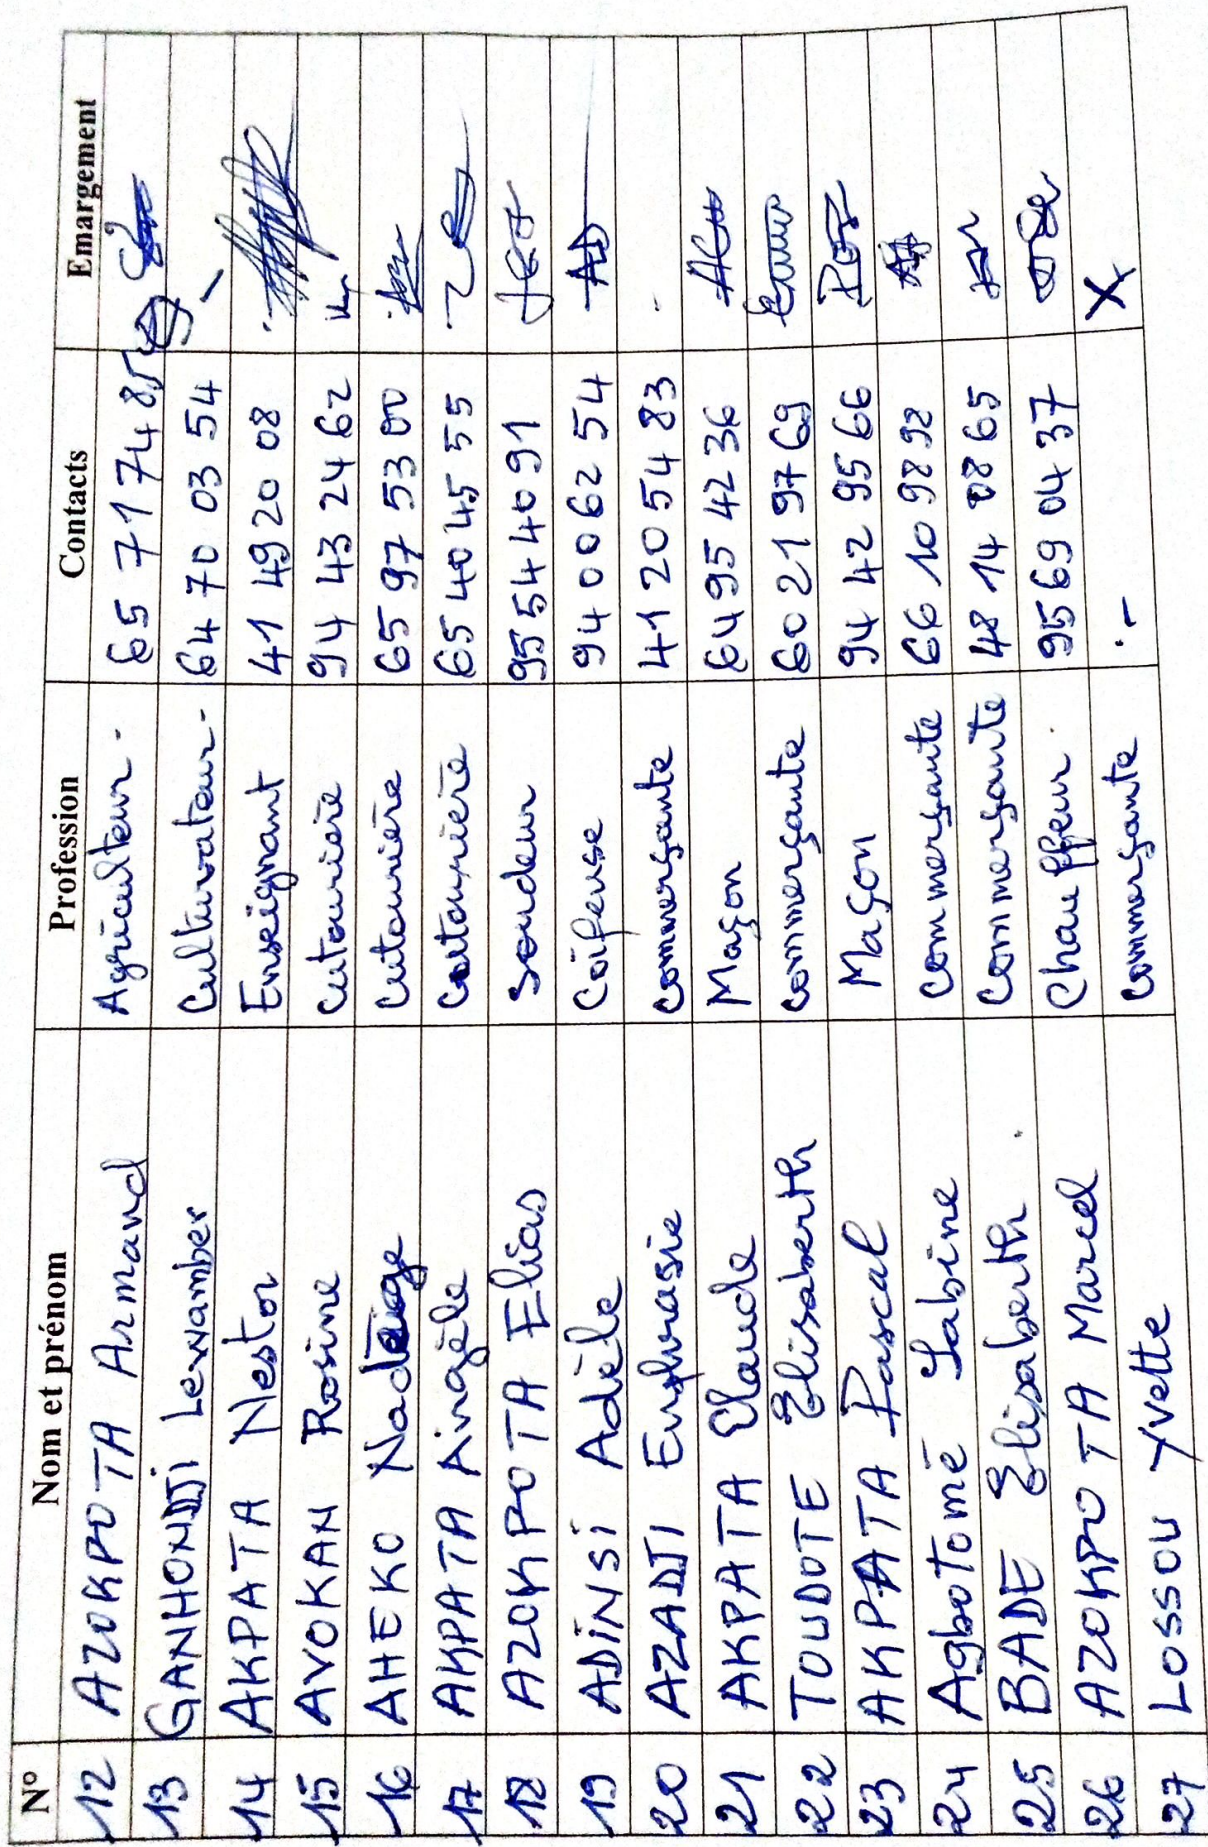 N° Nom et prénom Profession Contacts Emargement
12 AZOKPOTA Armand Agriculteur. 65 71 74 85
13 GANHONDJI Lewamber Cultuvateur. 64 70 03 54
14 AKPATA Nestor Enseignant 41 49 20 08
15 AVOKAN Rosine Cutourière 94 43 24 62
16 AHEKO Nadège Cutourière 65 97 53 00
17 AKPATA Aingèle Coutourière 65 40 45 55
18 AZOKPOTA Elias Soudeur 95 54 40 91
19 ADINSI Adèle Coifeuse 94 00 62 54
20 AZADJI Euphrasie Commerçante 41 20 54 83
21 AKPATA Claude Maçon 64 95 42 36
22 TOUDOTE Elisaberth Commerçante 60 21 97 69
23 AKPATA Pascal Maçon 94 42 95 66
24 Agbotomè Sabine Commerçante 66 10 98 92
25 BADE Elisaberth. Commerçante 48 14 08 65
26 AZOKPOTA Marcel Chauffeur. 95 69 04 37
27 LOSSOU Yvette Commerçante .- X